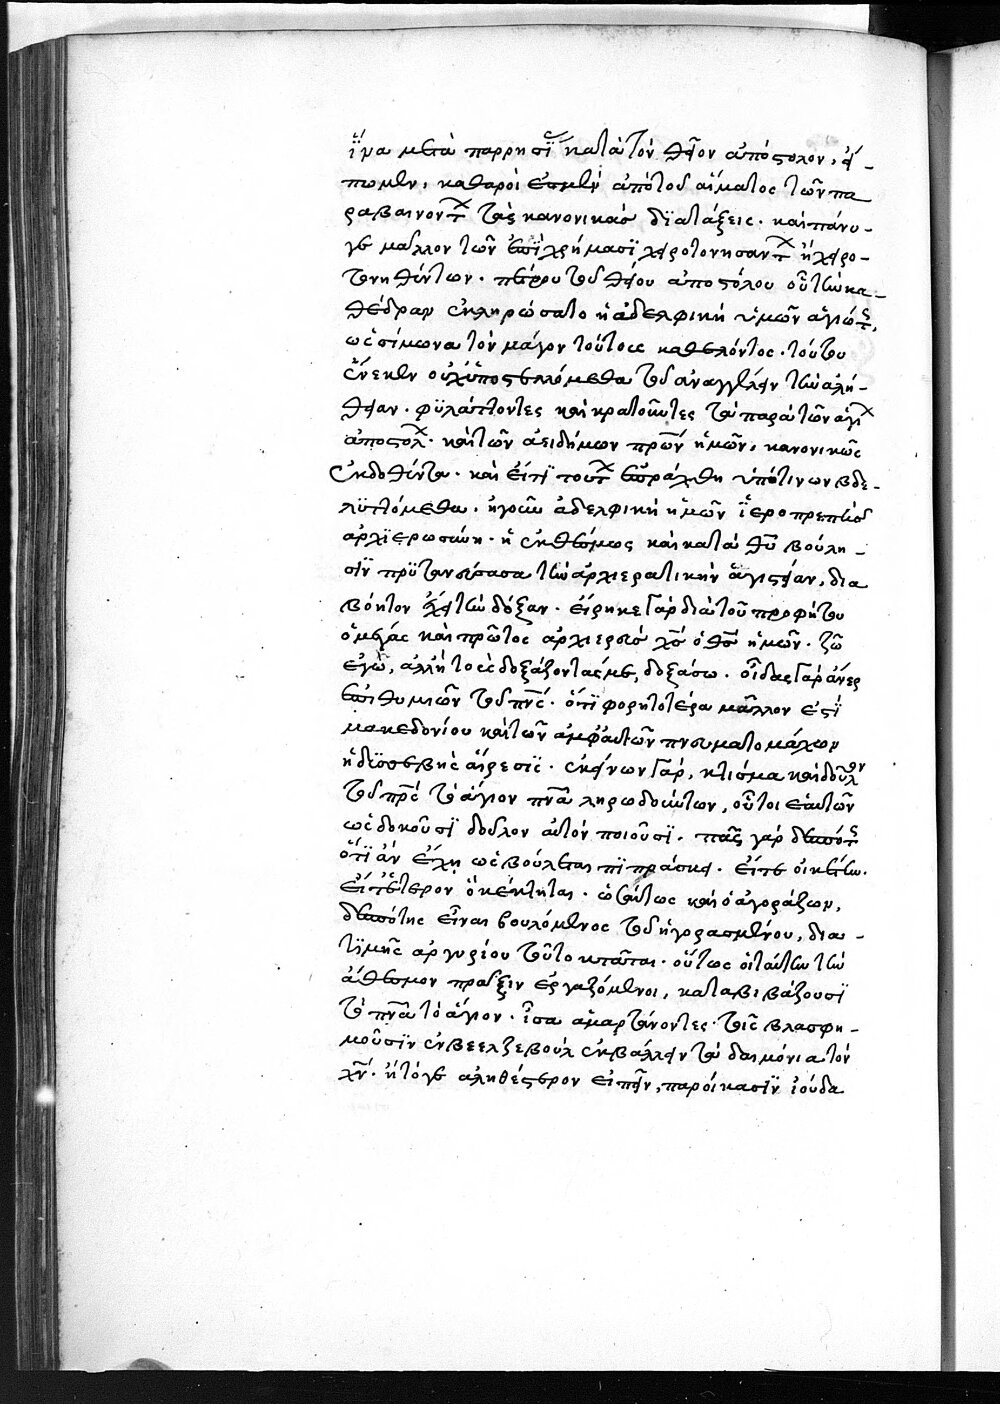 ἵνα μετὰ παρρησί κατὰ τὸν θεῖον ἀπόστολον, εἴ-
πωμεν, καθαροί ἐσμεν ἀπὸ τοῦ αἵματος τῶν πα
ραβαινοντ τὰς κανονικὰς διατάξεις. καὶ πάνυ-
γε μᾶλλον τῶν ἐπὶ χρήμασϊ χειροτονησαντ ἢ χειρο-
τονηθέντων. πέτρου τοῦ θείου ἀποστόλου οὗ τὴν κα-
θέδραν ἐκληρώσατο ἡ ἀδελφικὴ ὑμῶν ἁγιότ,
ὡς σίμωνα τὸν μάγον τούτους καθελόντος. τούτου
ἕνεκεν οὐχ ὑποστελλόμεθα τοῦ ἀναγγέλειν τὴν ἀλή-
θειαν. φϋλάττοντες καὶ κρατοῦντες τὰ παρὰ τῶν ἁγί
ἀποστόλ. καὶ τῶν ἀειδήμων πρῶν ἡμῶν, κανονικῶς
ἐκδοθέντα. καὶ εἴ τϊ τούτ ἐπράχθη ὑπό τινων βδε-
λϋττόμεθα. ἡ γοῦν ἀδελφικὴ ἡμῶν ἱεροπρεπὴς
ἀρχϊερωσύνη. ἡ ἐνθέσμως καὶ κατὰ θῦ βούλη-
σιν πρϋτανεύσασα τὴν ἀρχιερατικὴν ἁγιστείαν, δια
βόητον ἔχει τὴν δόξαν. εἴρηκε γὰρ διὰ τοῦ προφήτου
ὁ μέγας καὶ πρῶτος ἀρχιερεὺς χς ὁ θς ἡμῶν. ζῶ
ἐγὼ, ἀλλ' ἢ τοὺς δοξάζοντάς με, δοξάσω. οἶδας γὰρ ἄνερ
ἐπιθυμιῶν τοῦ πνς. ὅτϊ φορητοτέρα μᾶλλον ἐστϊ
μακεδονίου καὶ τῶν ἀμφ' αὐτὸν πνευματομάχων
ἡ δϋσσεβὴς αἵρεσϊς. ἐκείνων γὰρ, κτίσμα καὶ δοῦλον
τοῦ πρς τὸ ἅγιον πνα ληρωδούντων, οὗτοι ἑαυτῶν
ὡς δοκοῦσϊ δοῦλον αὐτὸν ποιοῦσϊ. πᾶς γὰρ δεσπότ
ὅτϊ ἂν ἔχῃ ὡς βούλεται πϊπράσκει. εἴτε οἰκέτην.
εἴτε ἕτερον ὃ κέκτηται. ὡσαύτως καὶ ὁ ἀγοράζων,
δεσπότης εἶναι βουλόμενος τοῦ ἠγορασμένου, δια-
τϊμῆς ἀργυρίου τοῦτο κτᾶται. οὕτως οἱ ταύτην τὴν
ἄθεσμον πρᾶξιν ἐργαζόμενοι, καταβιβάζουσϊ
τὸ πνα τὸ ἅγιον. ἴσα ἁμαρτάνοντες τοῖς βλασφη-
μοῦσϊν ἐν βεελζεβοὺλ ἐκβάλλειν τὰ δαιμόνια τὸν
χν. ἢ τόγε ἀληθέστερον εἰπεῖν, παροίκασϊν ἰούδα